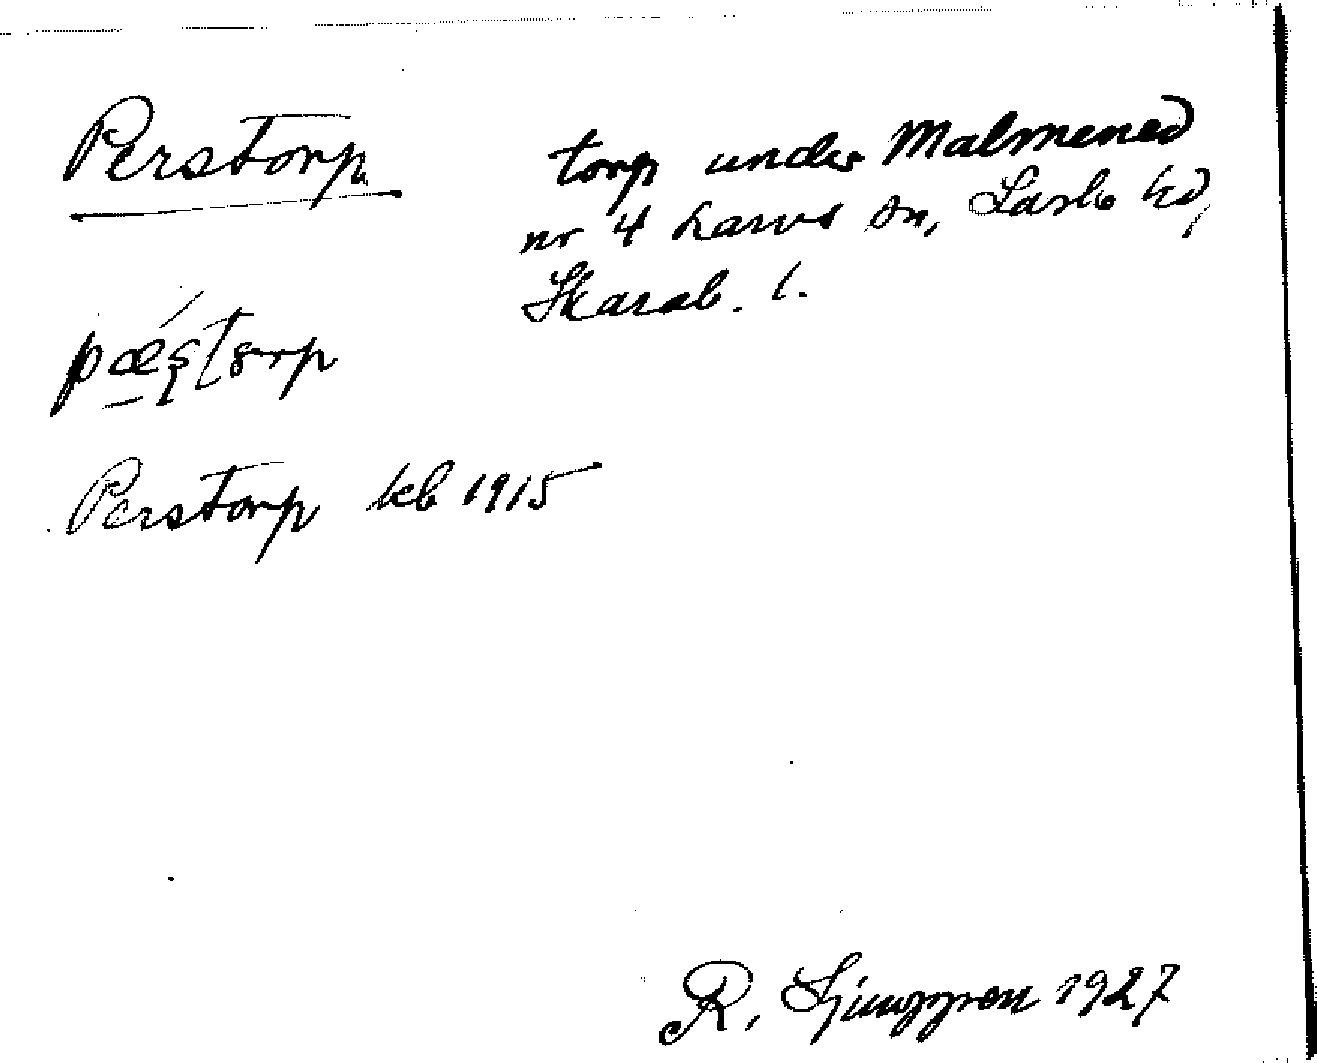 Perstorp torp under Malmened
nr 4 Larvs sn, Laske hd,
Skarab. l.
Perstorp kb 1915
R. Ljunggren 1927